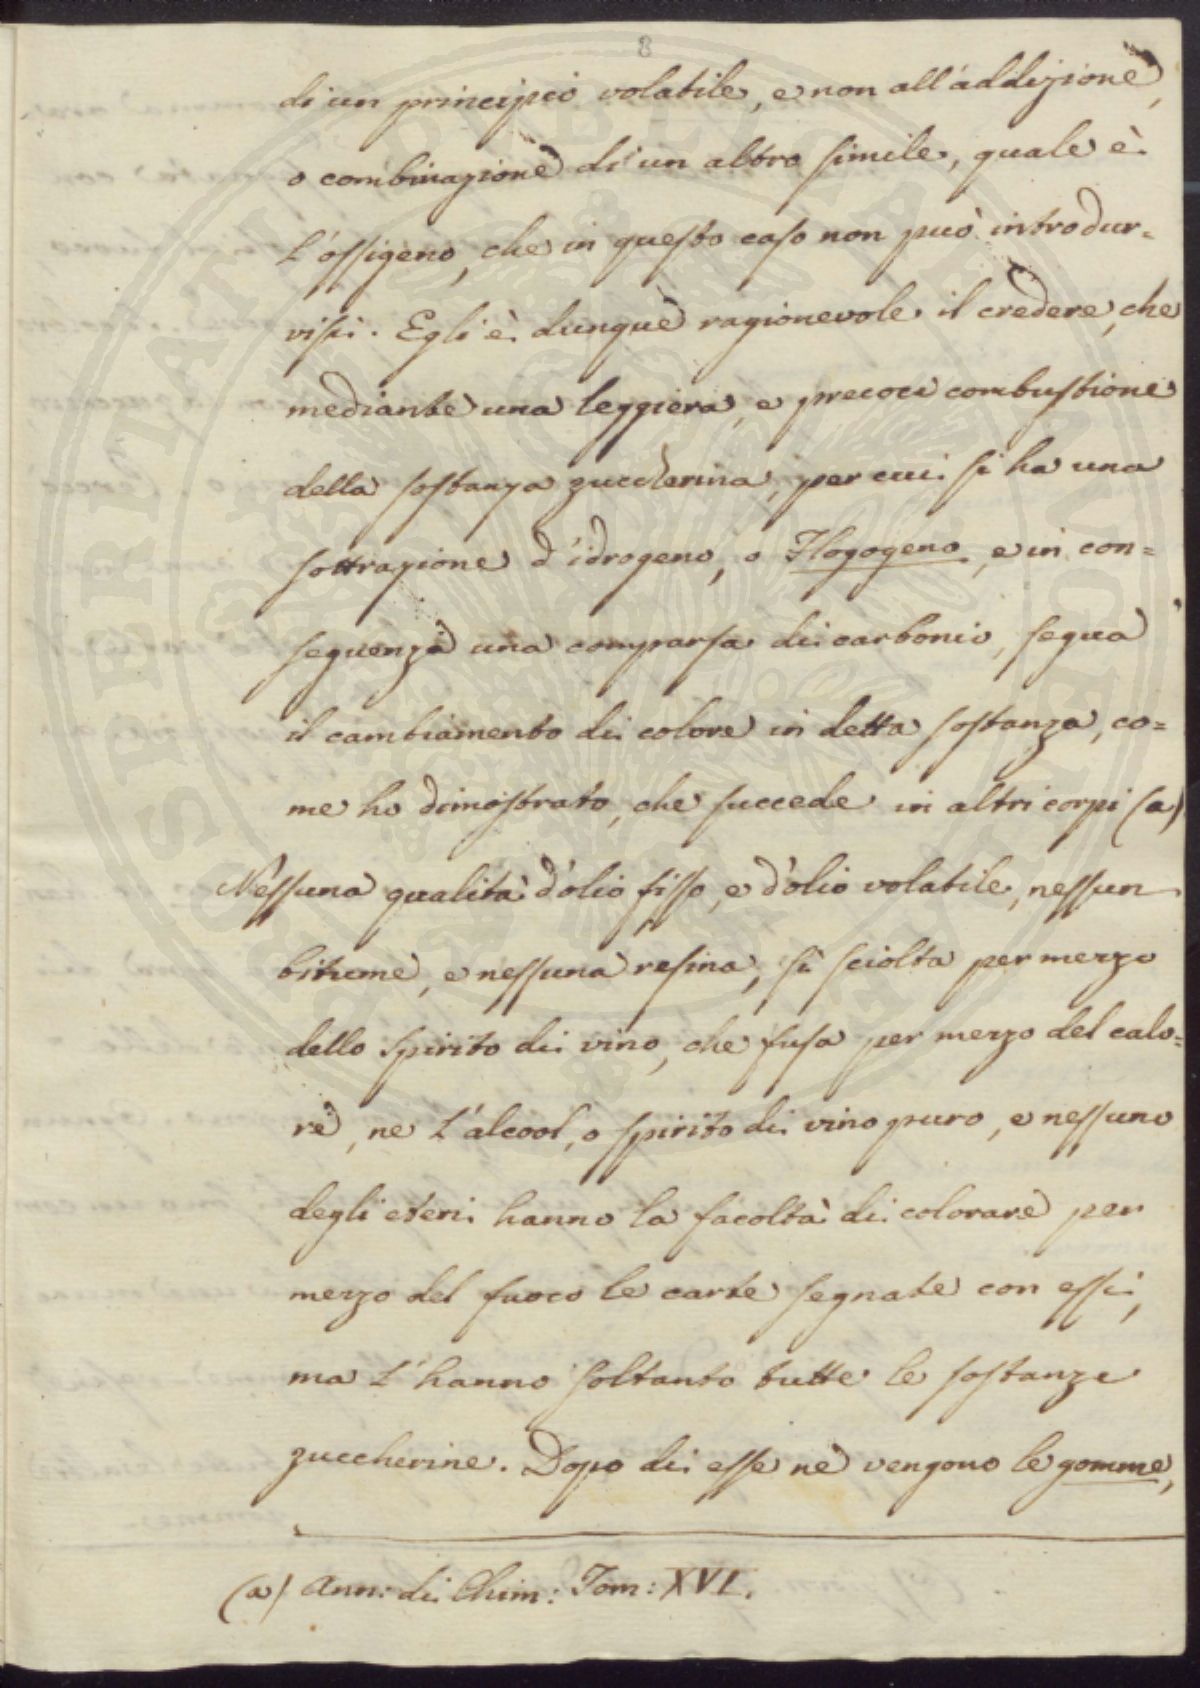 8
di un principio volatile, e non all'addizione,
o combinazione di un altro simile, quale è
l'ossigeno, che in questo caso non può introdur=
visi. Egli è dunque ragionevole il credere, che
mediante una leggiera, e precoce combustione
della sostanza zuccherina, per cui si ha una
sottrazione d'idrogeno, o Flogogeno, e in con=
seguenza una comparsa di carbonio, segua
il cambiamento di colore in detta sostanza, co=
me ho dimostrato, che succede in altri corpi (a)
Nessuna qualità d'olio fisso, e d'olio volatile, nessun
bitume, e nessuna resina, sì sciolta per mezzo
dello spirito di vino, che fusa per mezzo del calo=
re, ne l'alcool, o spirito di vino puro, e nessuno
degli eteri hanno la facoltà di colorare per
mezzo del fuoco le carte segnate con essi,
ma l'hanno soltanto tutte le sostanze
zuccherine. Dopo di esse ne vengono le gomme,
(a) Ann: di Chim: Tom: XVI.